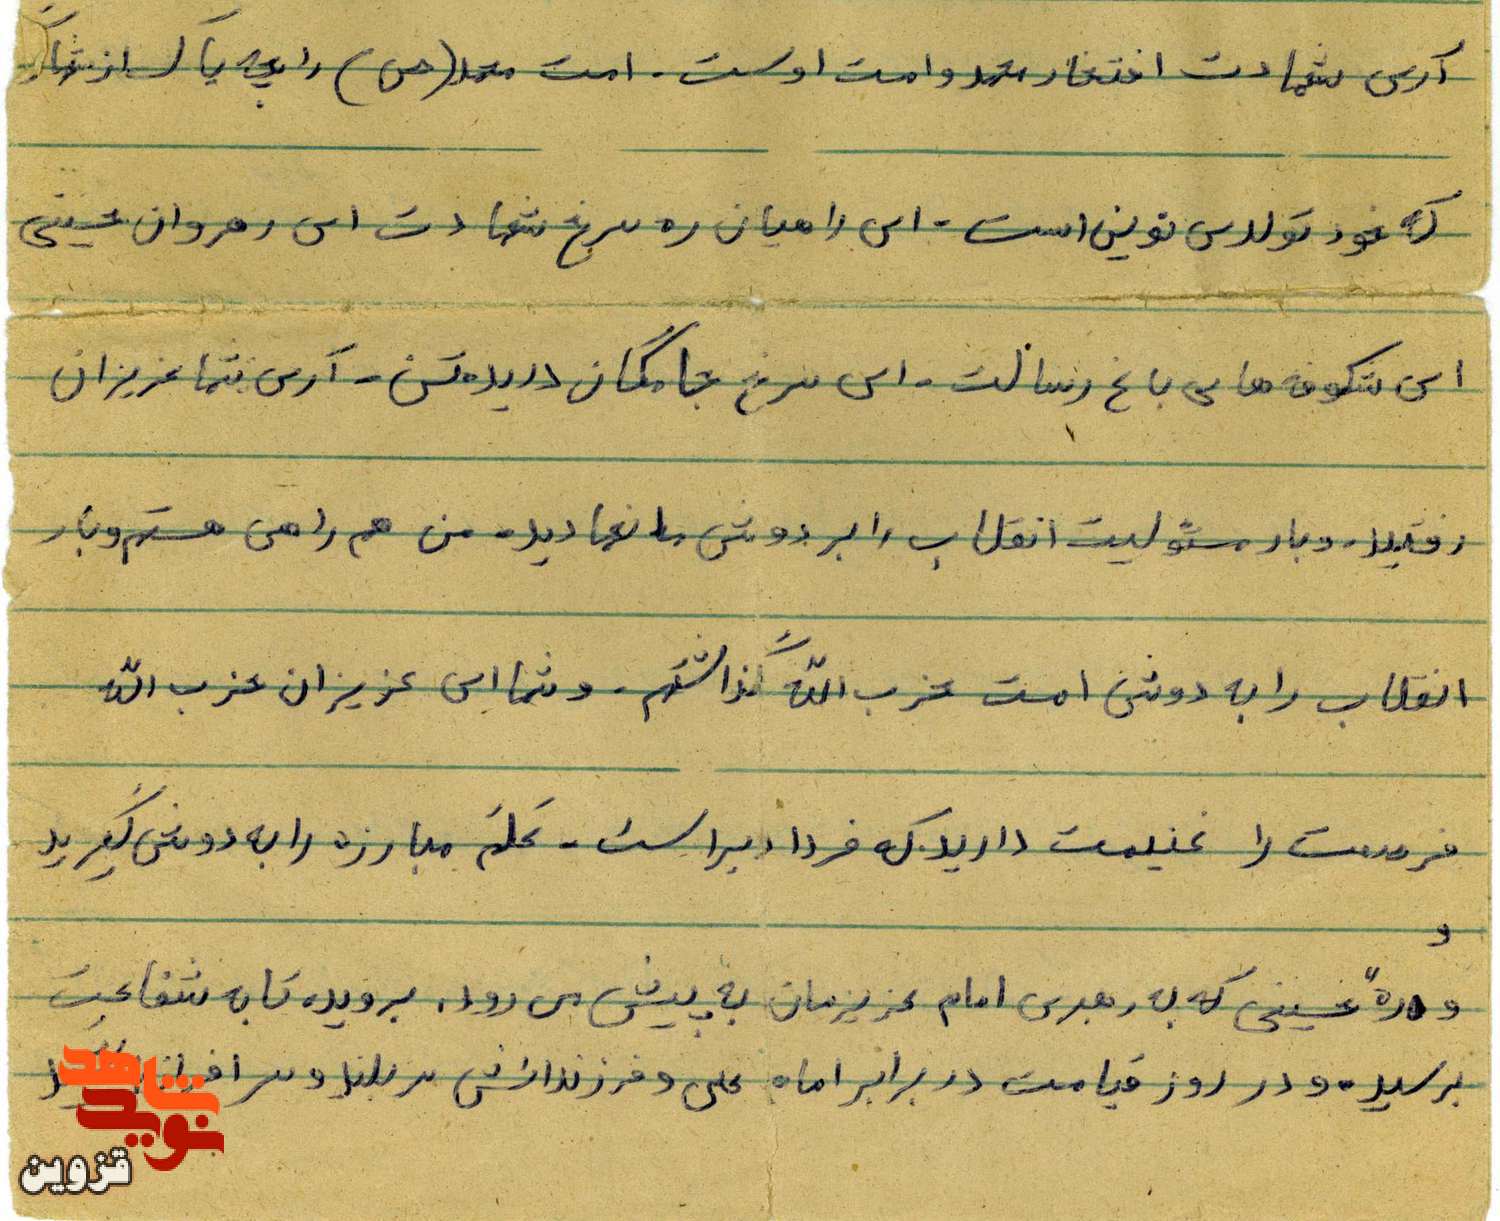 آری شهادت افتخار محمد و امت اوست. امت محمد(ص) را چه باک از شهادت
که خود تولدی نوین است. ای راهیان ره سرخ شهادت ای رهروان حسینی
ای شکوفه های باغ رسالت. ای سرخ جامگان دریده تن. آری شما عزیزان
رفتید. و بار مسئولیت انقلاب را بر دوش ما نهادید. من هم راهی هستم و بار
انقلاب را به دوش امت حزب اللّه گذاشتم. و شما ای عزیزان حزب اللّه
فرصت را غنیمت دارید که فردا دیر است. عَلَم مبارزه را به دوش گیرید
و
و ره حسینی که به رهبری امام عزیزمان به پیش می رود، بروید، تا به شفاعت
برسید، و در روز قیامت در برابر امام علی و فرزندانش سربلند و سرافراز
شاهد
نوید
قزوین